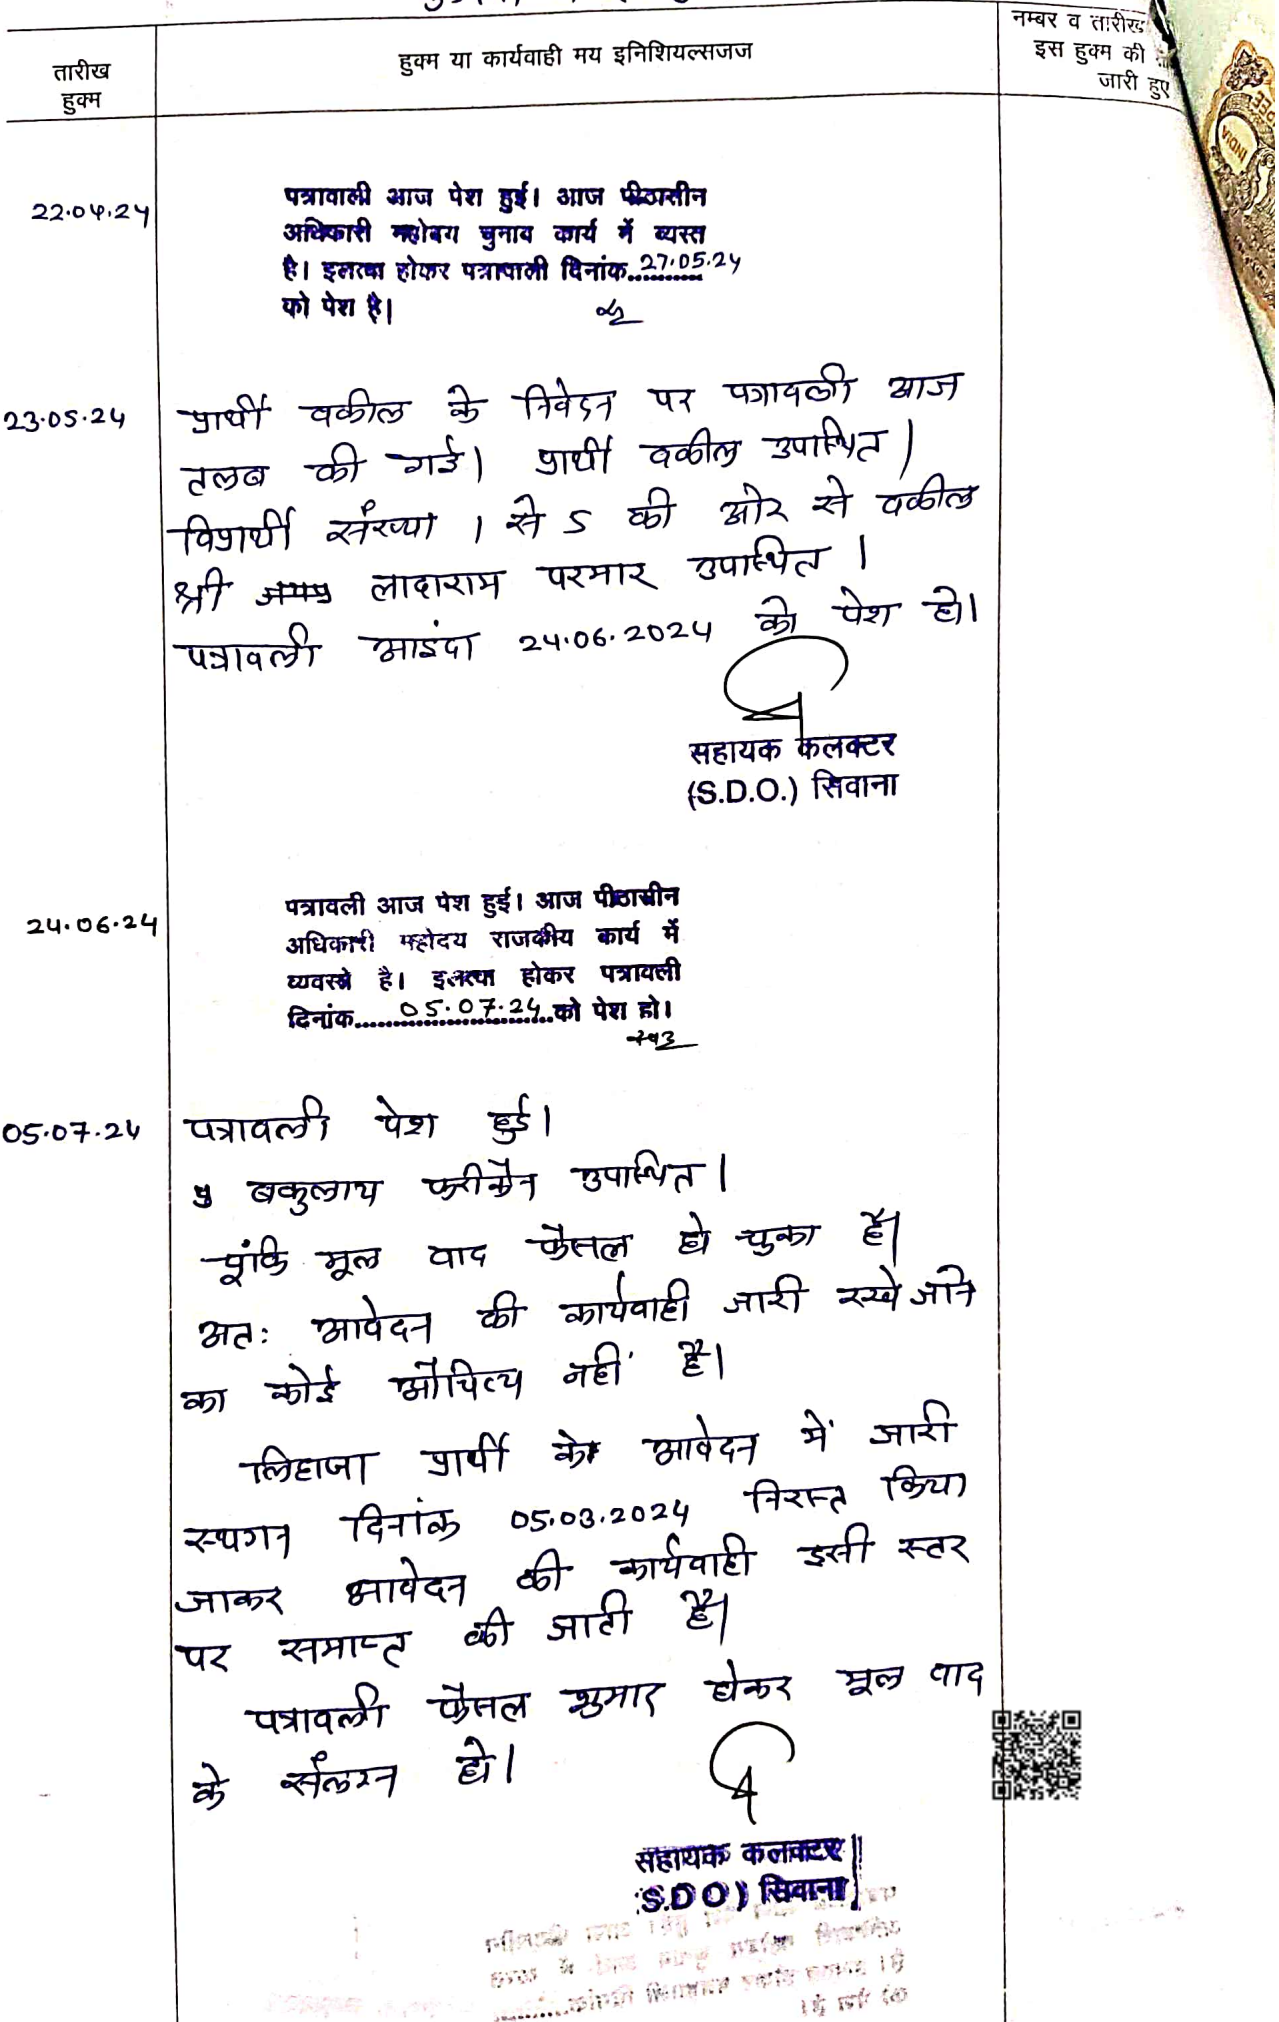 तारीख
हुक्म
हुक्म या कार्यवाही मय इनिशियल्सजज
नम्बर व तारीख
इस हुक्म की
जारी हुए
22.04.24
पत्रावाली आज पेश हुई। आज पीठासीन
अधिकारी महोदय चुनाव कार्य में व्यस्त
है। इलत्वा होकर पत्रावाली दिनांक..........27.05.24
को पेश है।
23.05.24
प्रार्थी वकील के निवेदन पर पत्रावली आज
तलब की गई। प्रार्थी वकील उपस्थित।
विप्रार्थी संख्या 1 से 5 की ओर से वकील
श्री लादाराम परमार उपस्थित।
पत्रावली आइंदा 24.06.2024 को पेश हो।
सहायक कलक्टर
(S.D.O.) सिवाना
24.06.24
पत्रावली आज पेश हुई। आज पीठासीन
अधिकारी महोदय राजकीय कार्य में
व्यवस्त है। इलत्वा होकर पत्रावली
दिनांक.....05.07.24.....को पेश हो।
05.07.24
पत्रावली पेश हुई।
वकुलाय फरीकैन उपस्थित।
चूंकि मूल वाद फैसल हो चुका है।
अतः आवेदन की कार्यवाही जारी रखे जाने
का कोई औचित्य नहीं है।
लिहाजा प्रार्थी के आवेदन में जारी
स्थगन दिनांक 05.03.2024 निरस्त किया
जाकर आवेदन की कार्यवाही इसी स्तर
पर समाप्त की जाती है।
पत्रावली फैसल शुमार होकर मूल वाद
के संलग्न हो।
सहायक कलक्टर
(S.D.O.) सिवाना